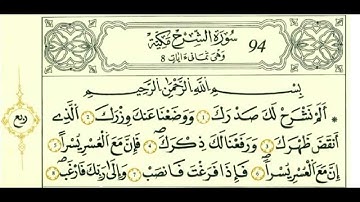 94 سُورَةُ الشَّرْحِ مَكِّيَّة
وَهِيَ ثَمَانِي ءَايَاتٍ 8
بِسْمِ اللَّهِ الرَّحْمَٰنِ الرَّحِيمِ
أَلَمْ نَشْرَحْ لَكَ صَدْرَكَ ۝١ وَوَضَعْنَا عَنكَ وِزْرَكَ ۝٢ الَّذِي
أَنقَضَ ظَهْرَكَ ۝٣ وَرَفَعْنَا لَكَ ذِكْرَكَ ۝٤ فَإِنَّ مَعَ الْعُسْرِ يُسْراً ۝٥
إِنَّ مَعَ الْعُسْرِ يُسْراً ۝٦ فَإِذَا فَرَغْتَ فَانصَبْ ۝٧ وَإِلَىٰ رَبِّكَ فَارْغَب ۝٨
ربع